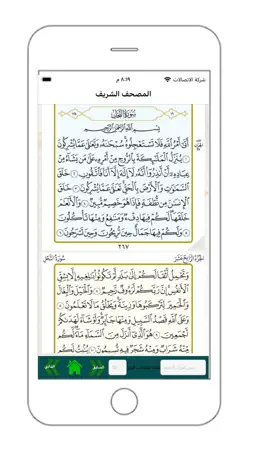 شركة الاتصالات
٨:١٩ م
المصحف الشريف
سُورَةُ النَّحْلِ
بِسْمِ اللَّهِ الرَّحْمَٰنِ الرَّحِيمِ
أَتَىٰ أَمْرُ اللَّهِ فَلَا تَسْتَعْجِلُوهُ سُبْحَانَهُ وَتَعَالَىٰ عَمَّا يُشْرِكُونَ
١ يُنَزِّلُ الْمَلَائِكَةَ بِالرُّوحِ مِنْ أَمْرِهِ عَلَىٰ مَن يَشَاءُ مِنْ
عِبَادِهِ أَنْ أَنذِرُوا أَنَّهُ لَا إِلَٰهَ إِلَّا أَنَا فَاتَّقُونِ ٢ خَلَقَ
السَّمَاوَاتِ وَالْأَرْضَ بِالْحَقِّ تَعَالَىٰ عَمَّا يُشْرِكُونَ ٣ خَلَقَ
الْإِنسَانَ مِن نُّطْفَةٍ فَإِذَا هُوَ خَصِيمٌ مُّبِينٌ ٤ وَالْأَنْعَامَ
خَلَقَهَا لَكُمْ فِيهَا دِفْءٌ وَمَنَافِعُ وَمِنْهَا تَأْكُلُونَ
٥ وَلَكُمْ فِيهَا جَمَالٌ حِينَ تُرِيحُونَ وَحِينَ تَسْرَحُونَ ٦
٢٦٧
الجزء الرابع عشر
سورة النحل
وَتَحْمِلُ أَثْقَالَكُمْ إِلَىٰ بَلَدٍ لَّمْ تَكُونُوا بَالِغِيهِ إِلَّا بِشِقِّ
الْأَنفُسِ إِنَّ رَبَّكُمْ لَرَءُوفٌ رَّحِيمٌ ٧ وَالْخَيْلَ وَالْبِغَالَ
وَالْحَمِيرَ لِتَرْكَبُوهَا وَزِينَةً وَيَخْلُقُ مَا لَا تَعْلَمُونَ ٨
وَعَلَى اللَّهِ قَصْدُ السَّبِيلِ وَمِنْهَا جَائِرٌ وَلَوْ شَاءَ لَهَدَاكُمْ
أَجْمَعِينَ ٩ هُوَ الَّذِي أَنزَلَ مِنَ السَّمَاءِ مَاءً لَّكُم
مِّنْهُ شَرَابٌ وَمِنْهُ شَجَرٌ فِيهِ تُسِيمُونَ ١٠ يُنبِتُ لَكُم
السابق
التالي